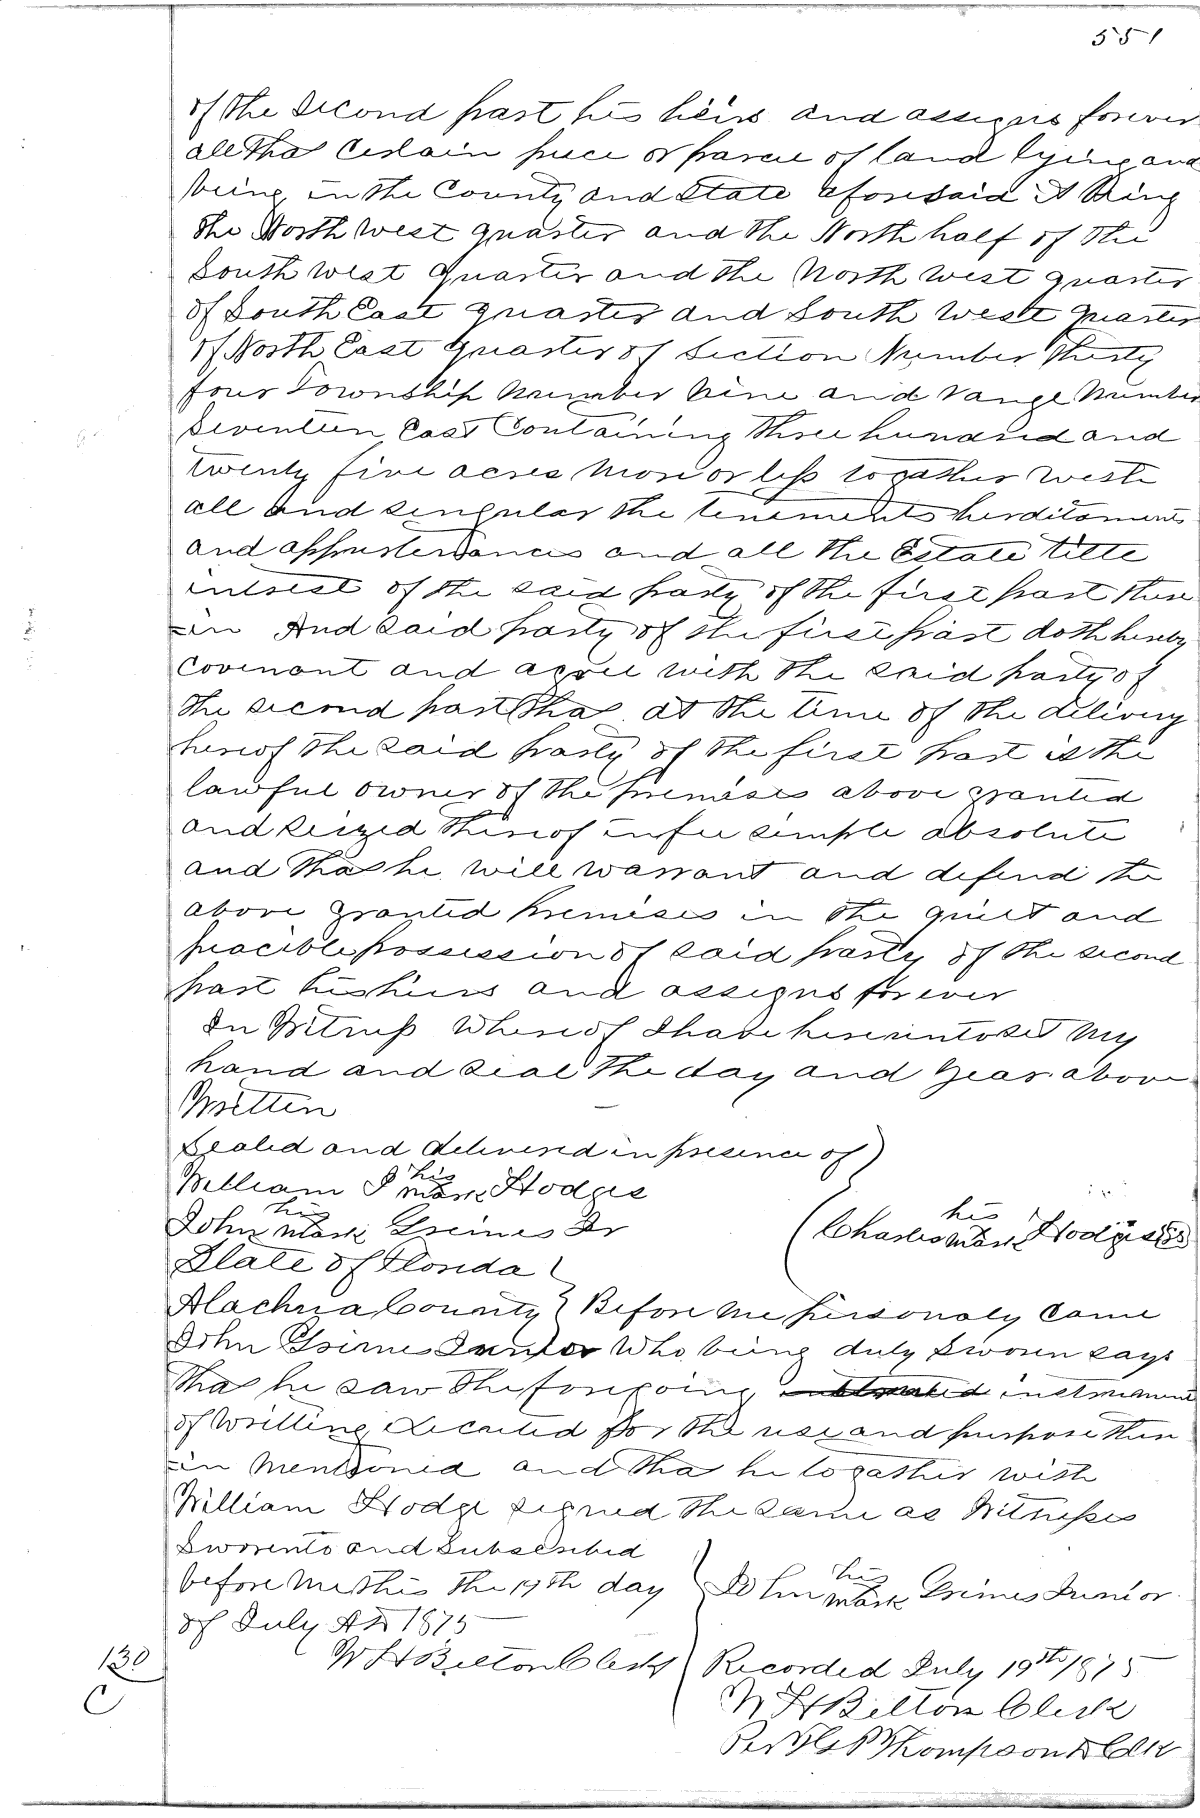 551
of the second part his heirs and assigns forever
all that certain piece or parcel of land lying and
being in the County and State aforesaid it being
the North west quarter and the North half of the
South west quarter and the North west quarter
of South East quarter and South west quarter
of North East quarter of section Number Thirty
four Township number Nine and range number
Seventeen East Containing three hundred and
twenty five acres more or less together with
all and singular the tenements herditaments
and appurtenances and all the Estate title
intrest of the said party of the first part there
=in And said party of the first part doth hereby
covenant and agree with the said party of
the second part that at the time of the delivery
hereof the said party of the first part is the
lawful owner of the premises above granted
and seized thereof in fee simple absolute
and that he will warrant and defend the
above granted premises in the quiet and
peacible possession of said party of the second
part his heirs and assigns forever
In Witness Whereof I have hereunto set my
hand and seal the day and year above
Written
Sealed and delivered in presence of
William J his mark Hodges
John his mark Greimes Jr
Charles his mark Hodges
State of Florida
Alachua County Before me personaly came
John Grimes Junior Who being duly sworen says
that he saw the foregoing instrument
of writting excuted for the use and purpose there
=in mentioned and that he togather with
William Hodge signed the same as Witnesses
Sworento and subscribed
before me this the 19th day
of July AD 1875
John his mark Grimes Junior
W H Belton Clerk
Recorded July 19th 1875
W H Belton Clerk
Per Thompson D Clk
130
C